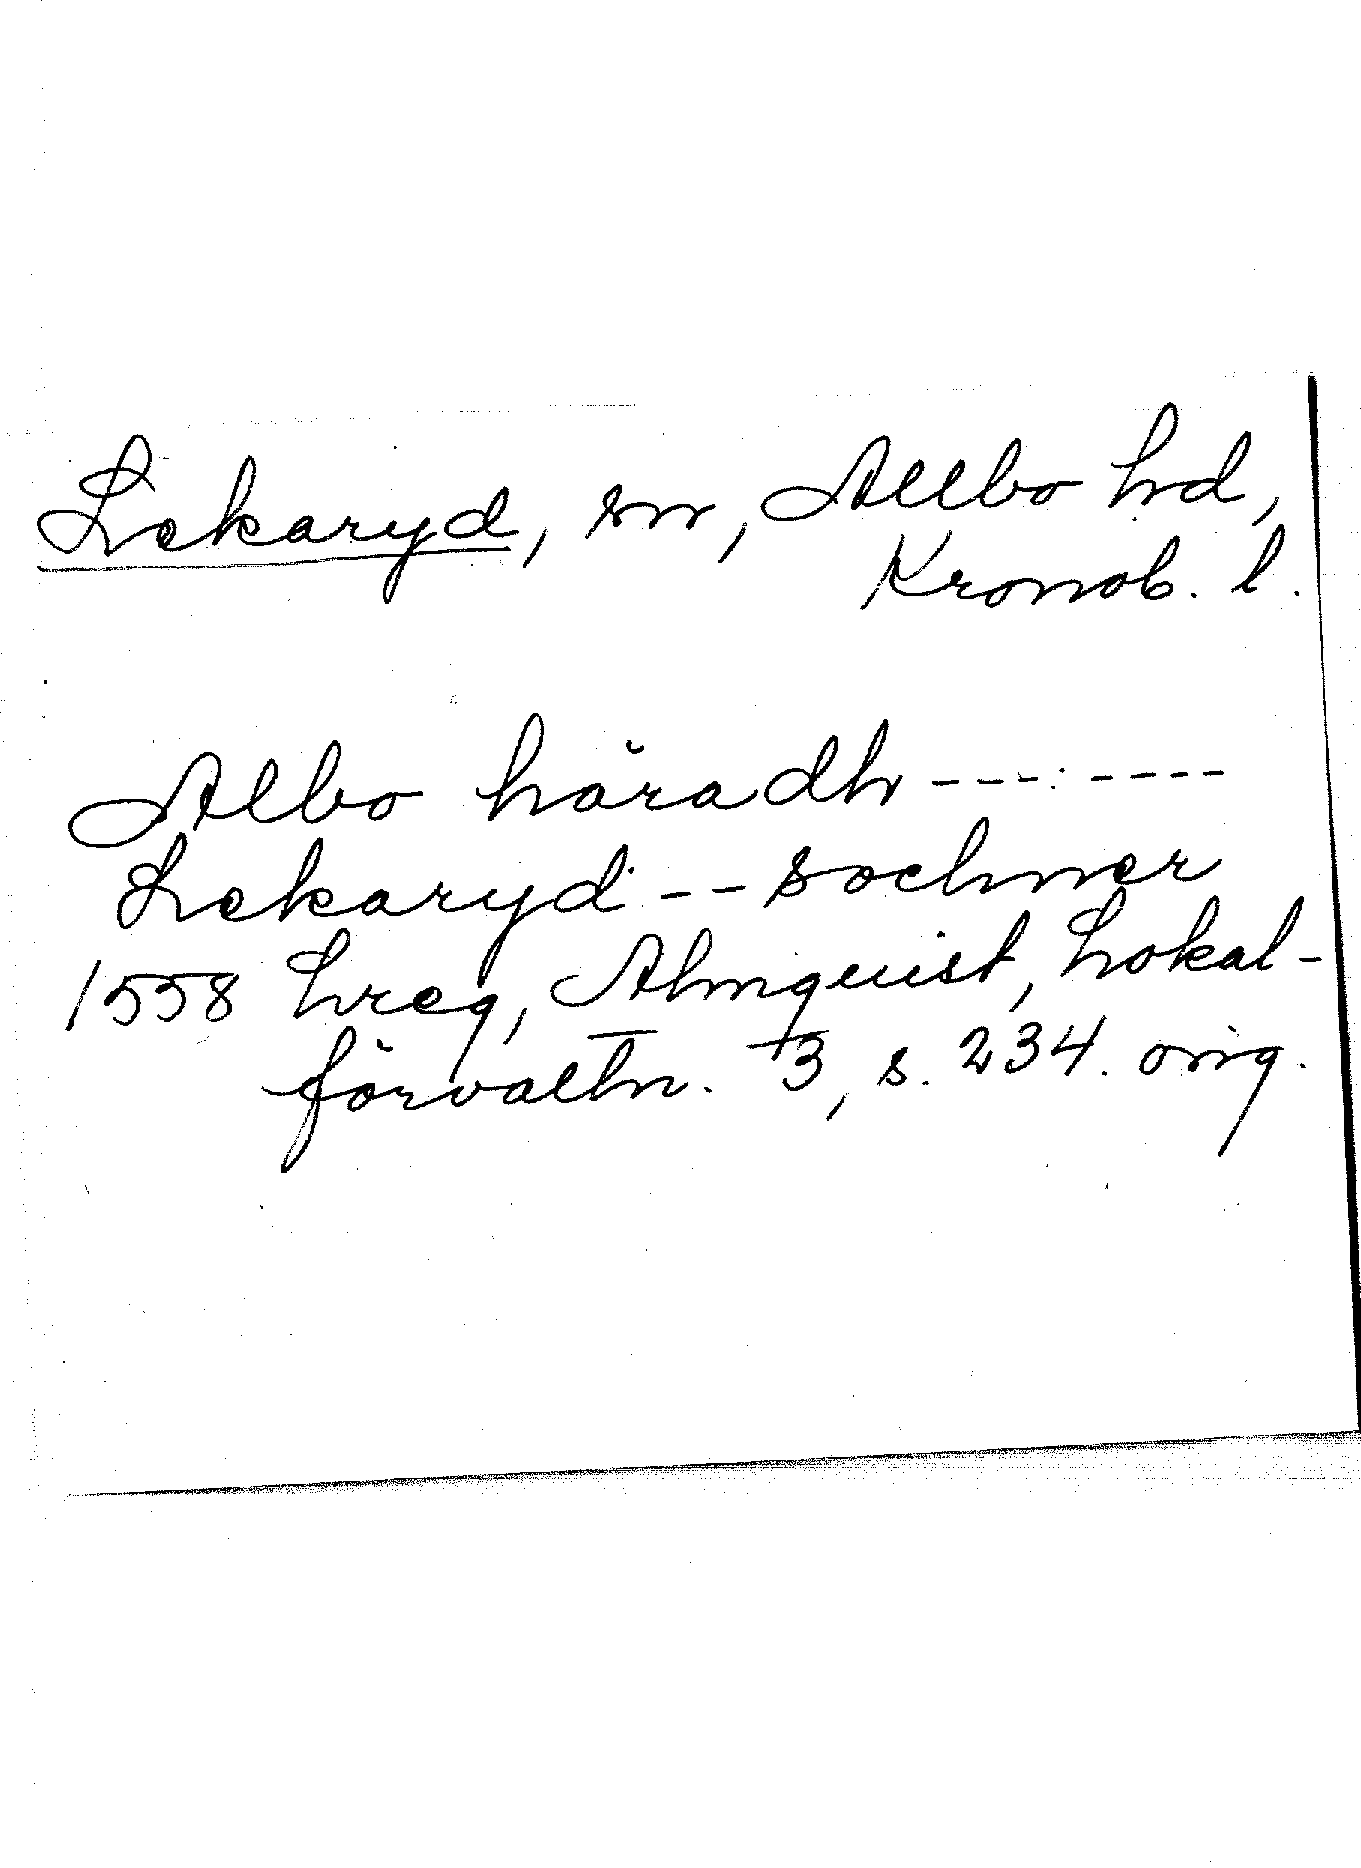 Lekaryd, sn, Allbo hd,
Kronob. l.
Albo häradh --- : ----
Lekaryd -- sochner
1558 Lreg, Almquist, Lokal-
förvaltn. 3, s. 234. orig.